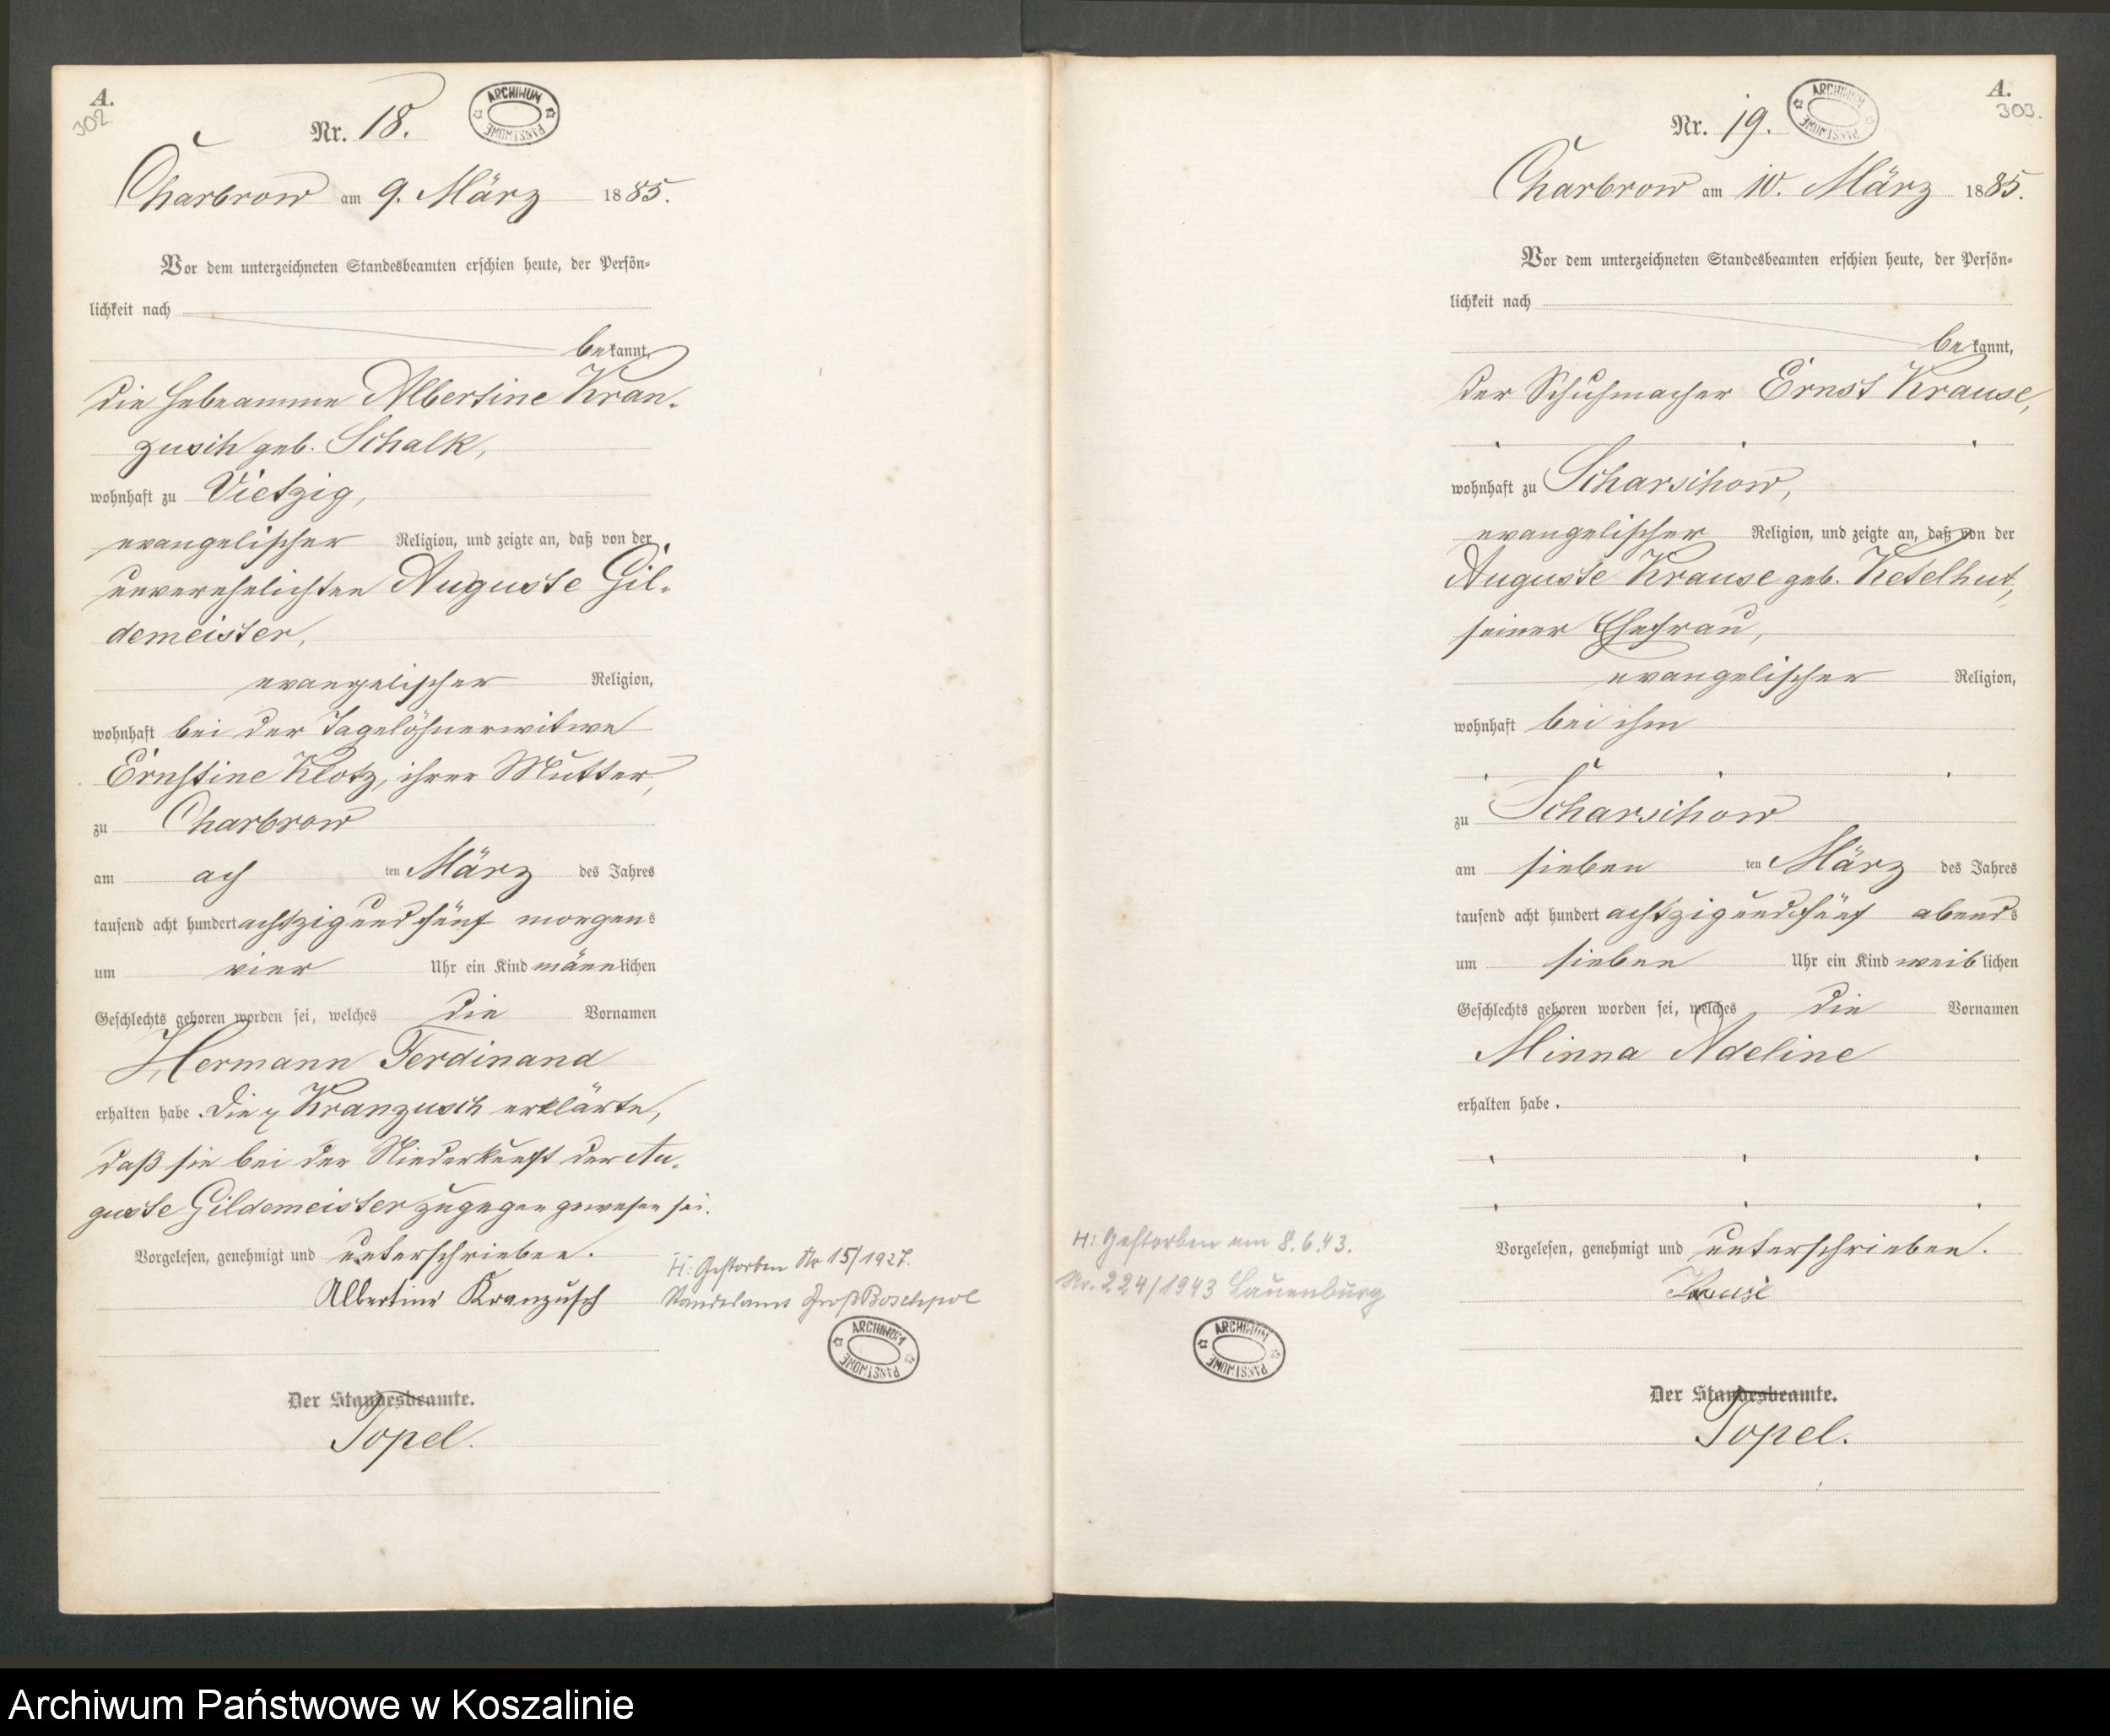 A.
302.
Nr. 18.
ARCHIWUM PAŃSTWOWE
Charbrow am 9. März 1885.
Vor dem unterzeichneten Standesbeamten erschien heute, der Persön-
lichkeit nach
bekannt,
die Hebeamme Albertine Kran-
zusch geb. Schalk,
wohnhaft zu Vietzig,
evangelischer Religion, und zeigte an, daß von der
unverehelichten Auguste Gil-
demeister,
evangelischer Religion,
wohnhaft bei der Tagelöhnerwitwe
Ernstine Klotz, ihrer Mutter,
zu Charbrow
am ach ten März des Jahres
tausend acht hundert achtzig und fünf morgens
um vier Uhr ein Kind männlichen
Geschlechts geboren worden sei, welches die Vornamen
Hermann Ferdinand
erhalten habe. Die Kranzusch erklärte,
daß sie bei der Niederkunft der Au-
guste Gildemeister zugegen gewesen sei.
Vorgelesen, genehmigt und unterschrieben.
Albertine Kranzusch
H: Gestorben Nr 15/1927.
Standesamt Groß Boschpol
ARCHIWUM PAŃSTWOWE
Der Standesbeamte.
Topel.
A.
303.
Nr. 19.
ARCHIWUM PAŃSTWOWE
Charbrow am 10. März 1885.
Vor dem unterzeichneten Standesbeamten erschien heute, der Persön-
lichkeit nach
bekannt,
der Schuhmacher Ernst Krause,
wohnhaft zu Scharschow,
evangelischer Religion, und zeigte an, daß von der
Auguste Krause geb. Ketelhut,
seiner Ehefrau,
evangelischer Religion,
wohnhaft bei ihm
zu Scharschow
am sieben ten März des Jahres
tausend acht hundert achtzig und fünf abends
um sieben Uhr ein Kind weiblichen
Geschlechts geboren worden sei, welches die Vornamen
Minna Adeline
erhalten habe.
Vorgelesen, genehmigt und unterschrieben.
Krause
H: Gestorben am 8.6.43.
Nr. 224/1943 Lauenburg
ARCHIWUM PAŃSTWOWE
Der Standesbeamte.
Topel.
Archiwum Państwowe w Koszalinie